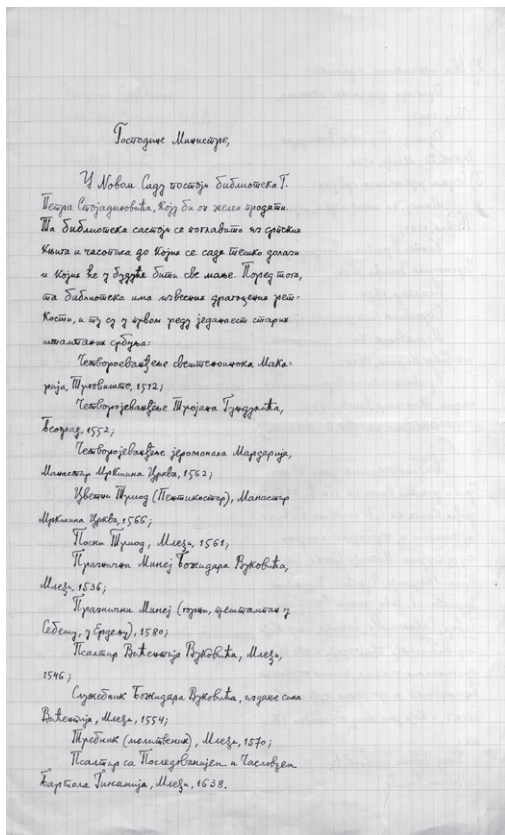 Господине Министре,
У Новом Саду постоји библиотека Г.
Петра Стојадиновића, коју би он желео продати.
Та библиотека састоји се поглавито из српских
књига и часописа до којих се сада тешко долази
и којих ће у будуће бити све мање. Поред тога,
та библиотека има извесних драгоцених рет-
кости, и ту су у првом реду једанаест старих
штампаних србуља:
Четвороевангеље свештеноинока Мака-
рија, Трговиште, 1512;
Четворојеванђеље Тројана Гундулића,
Београд, 1552;
Четворојеванђеље јеромонаха Мардарија,
Манастир Мркшина Црква, 1562;
Цветни Триод (Пентикостар), Манастир
Мркшина Црква, 1566;
Посни Триод, Млеци, 1561;
Празнични Минеј Божидара Вуковића,
Млеци, 1536;
Празнични Минеј (горњи, прештампан у
Себешу, у Ердељу), 1580;
Псалтир Вићентија Вуковића, Млеци,
1546;
Служебник Божидара Вуковића, издање сина
Вићентија, Млеци, 1554;
Требник (молитвеник), Млеци, 1570;
Псалтир са Последованијем и Часловцем
Бартола Гинамија, Млеци, 1638.